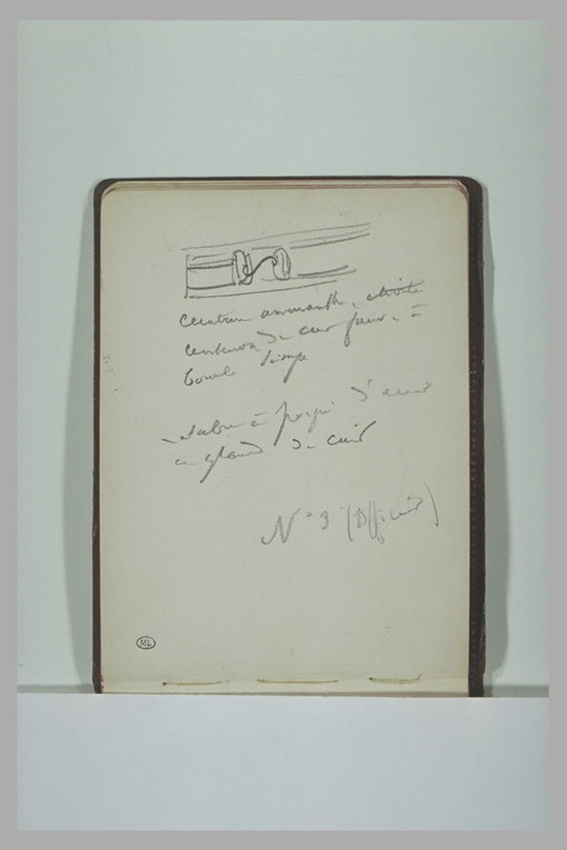 ceinture amaranthe, étroite
ceinturon de cuir jaune à
boucle simple
sabre à poignée d'acier
et gland de cuir
N° 3 (officier)
ML